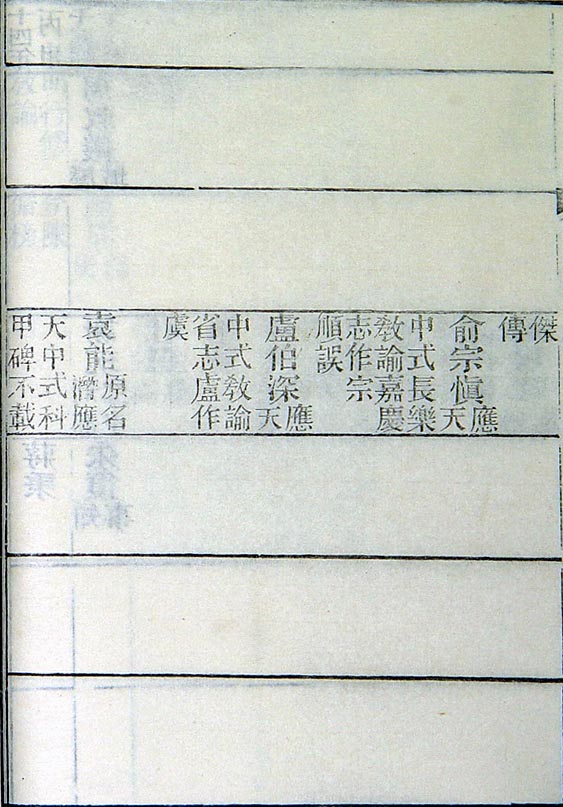 傑
傳
俞宗愼應天
中式長樂
敎諭嘉慶
志作宗
順誤
盧伯深應天
中式敎諭
省志盧作
虞
袁能原名濳應
天中式科
甲碑不載